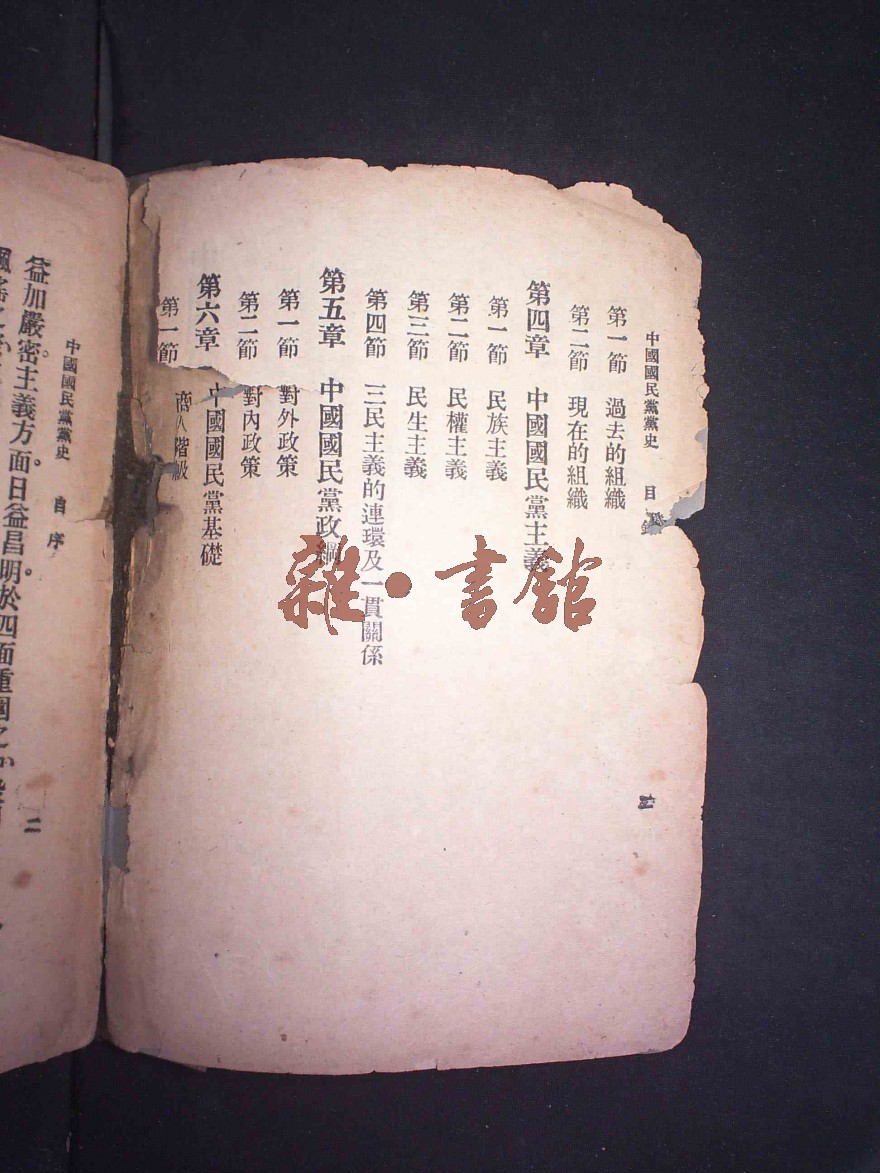 中國國民黨黨史 目錄
第一節 過去的組織
第二節 現在的組織
第四章 中國國民黨主義
第一節 民族主義
第二節 民權主義
第三節 民生主義
第四節 三民主義的連環及一貫關係
第五章 中國國民黨政綱
第一節 對外政策
第二節 對內政策
第六章 中國國民黨基礎
第一節 商人階級
中國國民黨黨史 自序
二
益加嚴密。主義方面。日益昌明。於四面重圍之
雜·書館